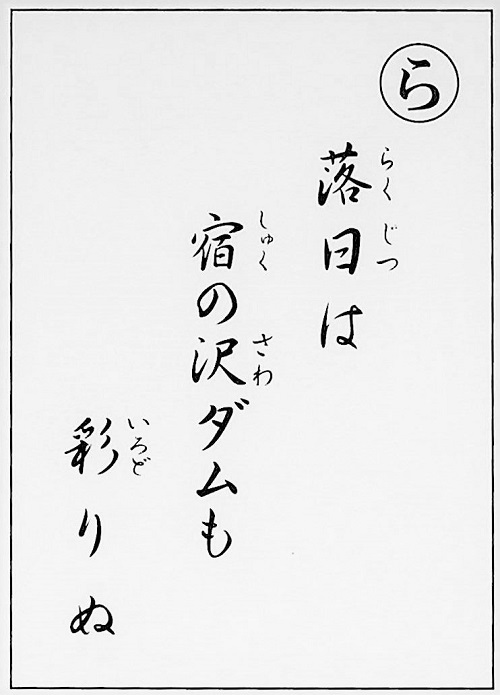 ら
落日は
らくじつ
宿の沢ダムも
しゅく さわ
彩りぬ
いろど